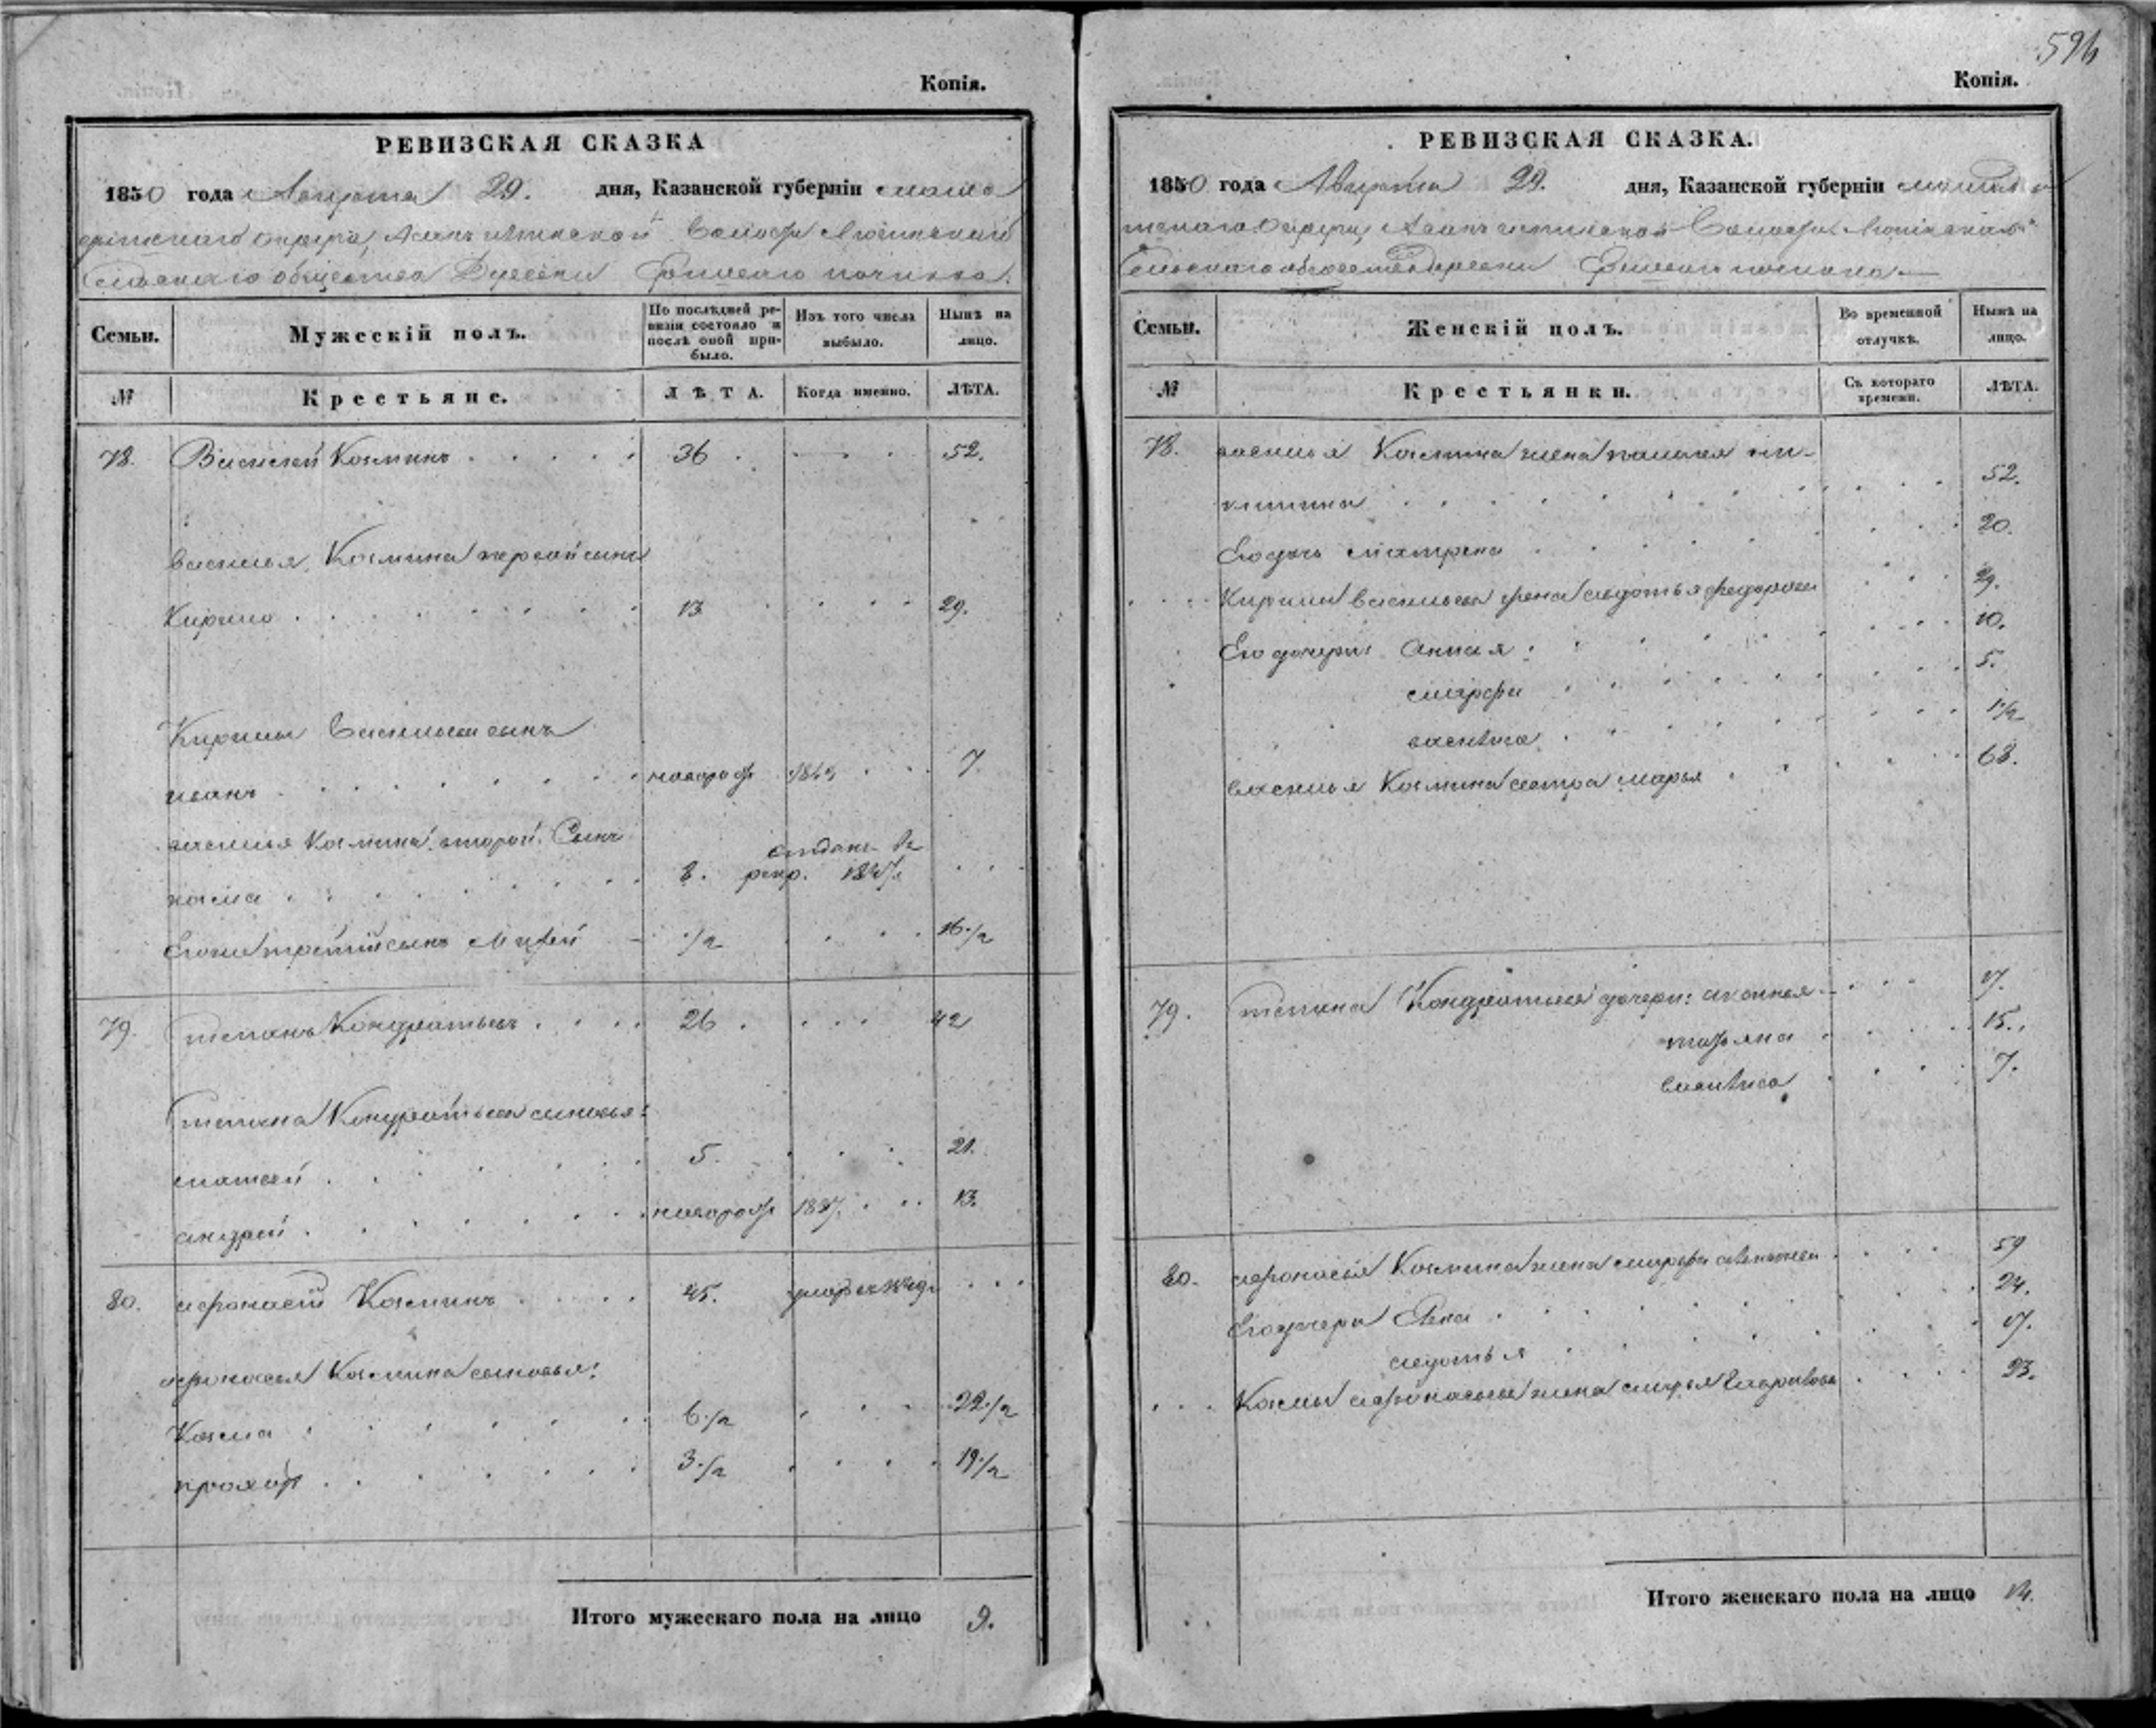 594
Копія.
РЕВИЗСКАЯ СКАЗКА
1850 года Августа 29. дня, Казанской губерніи
округа, волости
Сельскаго общества Деревни починка.
Семьи.
Мужескій полъ.
По послѣдней ре-
визіи состояло и
послѣ оной при-
было.
Изъ того числа
выбыло.
Нынѣ на
лицо.
№
Крестьяне.
ЛѢТА.
Когда именно.
ЛѢТА.
78. Василей Козминъ . . . . . 36 . . . . 52.
василья Козмина первой сынъ
Кирило . . . . . . . 13 . . . . 29.
Кирилы Васильева сынъ
иванъ . . . . . . . новорож 1843 . . 7
василья Козмина второй Сынъ
козма . . . . . . . 8. отданъ въ
рекр. 1847. . .
Его же третій сынъ 1/2 . . . . 16 1/2
79. Степанъ Кондратьевъ . . . . 26 . . . . 42
Степана Кондратьева сыновья:
матвей . . . . . . 5. . . . 21.
андрей . . . . . . . новорож 1837. . . . 13.
80. афонасей Козминъ . . . . 45. . . .
афонасья Козмина сыновья:
Козма . . . . . . 6 1/2 . . . 22 1/2
прохор . . . . . . 3 1/2 . . . . 19 1/2
Итого мужескаго пола на лицо 9.
Копія.
РЕВИЗСКАЯ СКАЗКА.
1850 года Августа 29. дня, Казанской губерніи
округа, волости
Сельскаго общества деревни починка
Семьи.
Женскій полъ.
Во временной
отлучкѣ.
Нынѣ на
лицо.
№
Крестьянки.
Съ котораго
времени.
ЛѢТА.
78. василья Козмина жена ни-
китина . . . . . . . . 52.
Его дочь матрена . . . . . . 20.
Кирилы васильева жена авдотья федорова . . . 29.
Его дочери: Анна . . . . . . 10.
марфа . . . . . . . 5.
. . . . . . . 1 1/2
василья Козмина сестра марья . . . . . . 68.
79. Степана Кондратьева дочери: . . . 17.
татьяна . . . . 15.
. . . . 7.
80. афонасья Козмина жена марфа . . . 59
Его дочери . . . . . . 24.
авдотья . . . . . . 17.
. . . Козмы афонасьева жена марья . . . . 23.
Итого женскаго пола на лицо 14.